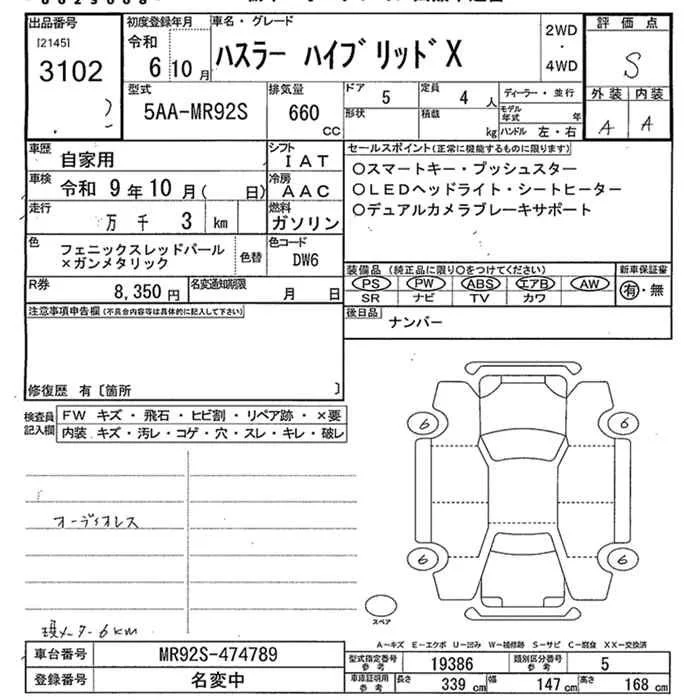 出品番号
[2145]
3102
初度登録年月
令和
6 10 月
車名・グレード
ハスラー ハイブリッドX
2WD
・
4WD
評価点
S
外装 内装
A A
型式
5AA-MR92S
排気量
660
CC
ドア
5
定員
4 人
形状
積載
kg
ディーラー・並行
モデル年式 年
ハンドル 左・右
車歴
自家用
シフト
I A T
車検
令和 9 年 10 月 ( 日)
冷房
A A C
走行
万 千 3 km
燃料
ガソリン
色
フェニックスレッドパール
×ガンメタリック
色替
色コード
DW6
R券
8,350 円
名変通知期限
月 日
セールスポイント(正常に機能するものに限ります)
○スマートキー・プッシュスター
○LEDヘッドライト・シートヒーター
○デュアルカメラブレーキサポート
装備品 (純正品に限り○をつけてください)
PS PW ABS エアB AW
SR ナビ TV カワ
新車保証書
有・無
後日品
ナンバー
注意事項申告欄(不具合内容等は具体的に記入して下さい)
修復歴 有〔箇所 〕
検査員
記入欄
FW キズ・飛石・ヒビ割・リペア跡・×要
内装 キズ・汚レ・コゲ・穴・スレ・キレ・破レ
オーディオレス
現メーター6KM
6 6
6 6
スペア
A-キズ E-エクボ U-凹み W-補修跡 S-サビ C-腐食 XX-交換済
車台番号
MR92S-474789
登録番号
名変中
型式指定番号
参考
19386
類別区分番号
参考
5
車庫証明用
参考
長さ
339 cm
幅
147 cm
高さ
168 cm